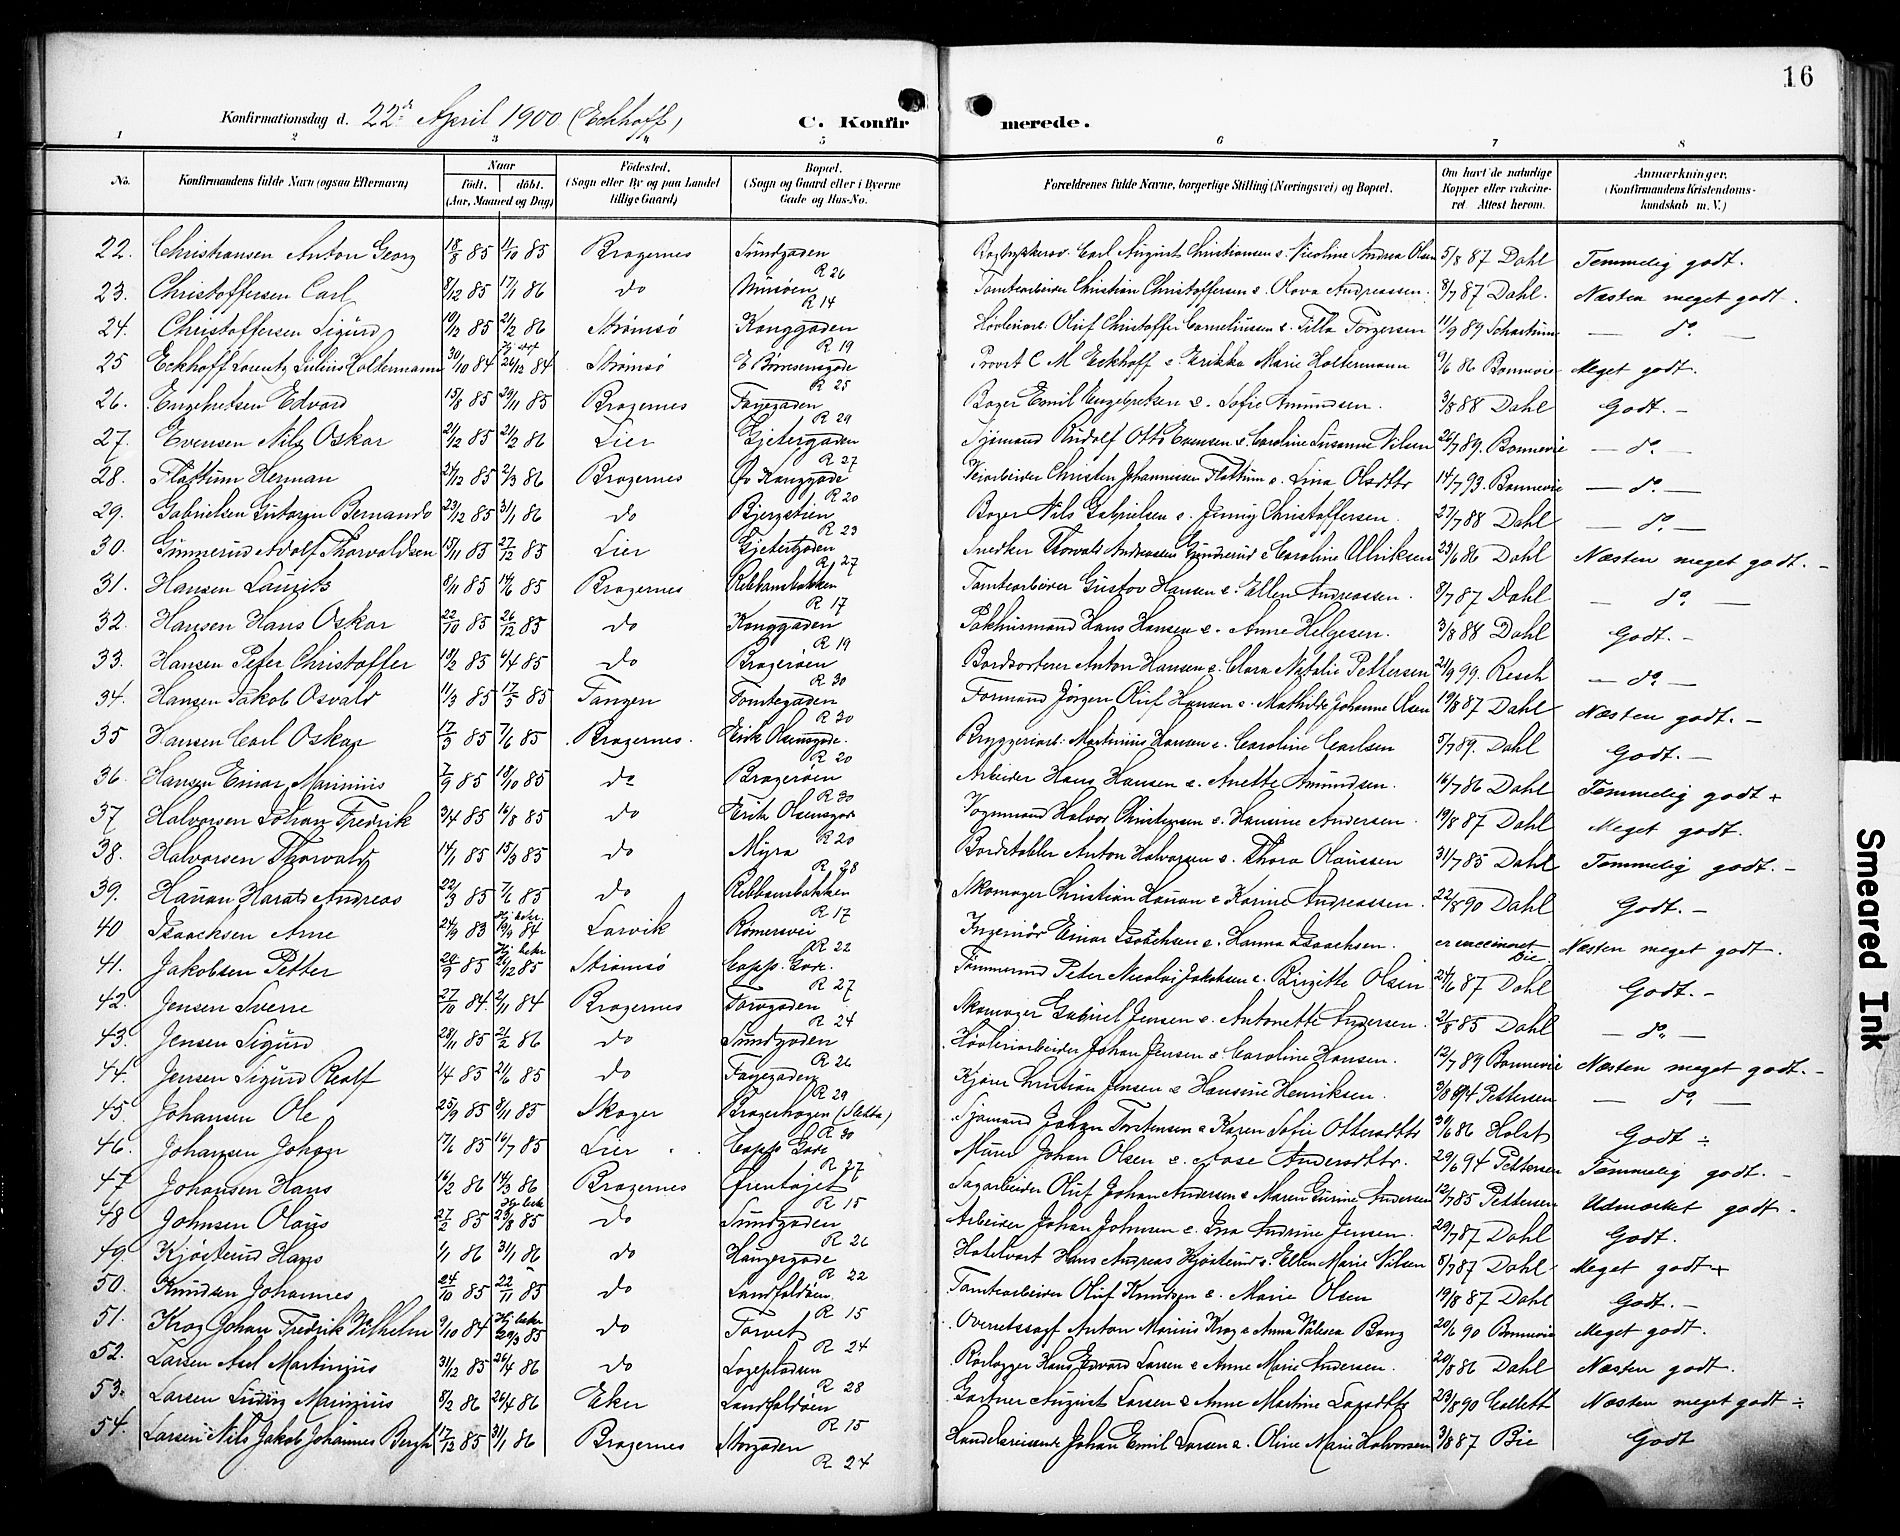 16
Konfirmationsdag d. 22de April 1900 (Eckhoff) C. Konfirmerede.
1 2 3 4 5 6 7 8
No. Konfirmandens fulde Navn (ogsaa Efternavn) Naar født. døbt. (Aar, Maaned og Dag) Fødested. (Sogn eller By og paa Landet tillige Gaard) Bopæl. (Sogn og Gaard eller i Byerne Gade og Hus-No. Forældrenes fulde Navne, borgerlige Stilling (Næringsvei) og Bopæl. Om havt de naturlige Kopper eller vakcineret. Attest herom. Anmærkninger. (Konfirmandens Kristendomskundskab m. V.)
22. Christiansen Anton Georg 18/8 85 11/10 85 Bragernes Sundgaden R 26 Bogtrykkersv. Carl August Christiansen e. Nicoline Andrea Olsen 5/8 87 Dahl Temmelig godt.
23. Christoffersen Carl 8/12 85 17/1 86 do R 14 Tomtearbeider Christian Christoffersen e. Olava Andreassen 8/7 87 Dahl. Næsten meget godt.
24. Christoffersen Sigurd 19/12 85 21/2 86 Strømsø Konggaden R 19 Oluf Christoffer Corneliussen e. Tilla Torgersen 11/9 89 Schartum — do —
25 Eckhoff Lorentz Julius Holtermann 30/10 84 26/12 84 Strømsø E Børresensgade R 25 Provst C M Eckhoff e. Erikka Marie Holtermann 9/6 86 Bonnevie Meget godt.
26. Engebretsen Edvard 15/8 85 29/11 85 Bragernes Fayegaden R 29 Bager Emil Engebretsen e. Sofie Amundsen. 3/8 88 Dahl Godt. -
27. Evensen Nils Oskar 21/12 85 21/2 86 Lier Gjetergaden R 27 Sjømand Rudolf Otto Evensen e. Caroline Susanne Nilsen 26/7 89. Bonnevie — do. —
28. Flattum Herman 27/12 85 2/3 86 Bragernes Øv Konggade R 20 Veiarbeider Christen Johannessen Flattum e. Lina Olsdtr 14/7 93. Bonnevie — do. —
29. Gabrielsen Gustav Bernando 23/12 85 31/1 86 do Bjergstien R 23 Bager Nils Gabrielsen e. Jenny Christoffersen. 27/7 88 Dahl — do. —
30. Gunnerud Adolf Thorvaldsen 15/11 85 27/12 85 Lier Gjetergaden R 27 Snedker Thorvald Andreassen Gunnerud e Caroline Ulriksen 23/6 86 Dahl Næsten meget godt. -
31. Hansen Laurits 8/11 85 14/6 85 Bragernes Ribbansbakken R 17 Tomtearbeider Gustav Hansen e. Ellen Andreassen. 8/7 87 Dahl — do. —
32. Hansen Hans Oskar 22/10 85 26/12 85 do Konggaden R 19 Pakhusmand Hans Hansen e. Anne Helgesen. 3/8 88 Dahl Godt. -
33. Hansen Peter Christoffer 13/2 85 6/4 85 do Bragerøen R 30 Bordsorterer Anton Hansen e. Clara Natalie Pettersen 21/9 99. Resch — do —
34. Hansen Jakob Osvald 11/3 85 17/5 85 Tangen Tomtegaden R 30 Formand Jørgen Oluf Hansen e. Mathilde Johanne Olsen 19/8 87 Dahl Næsten godt. -
35 Hansen Carl Oskar 17/3 85 7/6 85 Bragernes. Erik Olsensgade. R 20 Bryggeriarb. Martinius Hansen e. Caroline Carlsen 5/7 89. Dahl Godt. —
36. Hansen Einar Marinius 7/9 85 18/10 85 do Bragerøen R 30 Arbeider Hans Hansen e. Anette Amundsen. 16/7 86 Dahl Temmelig godt +
37 Halvorsen Johan Fredrik 3/4 85 16/8 85 do Erik Olsensgade R 20 Vognmand Halvor Christensen e. Hansine Andersen. 19/8 87 Dahl Meget godt.
38. Halvorsen Thorvald 14/1 85 15/3 85 do Myra R 28 Bordstabler Anton Halvorsen e. Thora Olaussen 31/7 85 Dahl Temmelig godt. -
39. Hauan Harald Andreas 22/3 85 7/6 85 do Ribbansbakken R 17 Skomager Christian Hauan e Karine Andreassen. 22/8 90 Dahl Godt. -
40 Isaachsen Arne 24/9 83 19/4 84 Larvik Rømersvei R 22 Ingeniør Einar Isaachsen e. Hanna Isaachsen. er vaccineret Bie. Næsten meget godt.
41. Jakobsen Petter 29/9 85 26/12 85 Strømsø Capp. Gade. R 27 Tømmermd Peter Nicolai Jakobsen e. Birgitte Olsen 24/6 87 Dahl Godt. -
42. Jensen Sverre 27/10 84. 2/11 84 Bragernes Torvgaden R 24 Skomager Gabriel Jensen e. Antonette Andersen. 21/8 85 Dahl — do. —
43. Jensen Sigurd 28/11 85 21/2 86 do Sundgaden R 26 Høvleriarbeider Johan Jensen e Caroline Hansen. 12/7 89 Bonnevie Næsten meget godt. -
44. Jensen Sigurd Realf 1/4 85 21/6 85 do Fayegaden R 29 Kjører Christian Jensen e Hansine Henriksen. 3/8 94 Pettersen — do —
45. Johansen Ole 25/9 85 8/11 85 Skoger Bragerhagen (Sletta) R 30 Sjømand Johan Torstensen e Karen Sofie Ottersdtr 30/6 86 Holst Godt ÷
46. Johansen Johan 17/6 85 16/7 85 Lier Capps Gade R 27 Murer Johan Olsen e. Aase Andersdtr. 29/6 94 Pettersen Temmelig godt. -
47 Johansen Hans 16/2 86 14/3 86 Bragernes Øren R 15 Sagarbeider Oluf Johan Andersen e Maren Gurine Andersen 12/7 85 Pettersen Udmærket godt -
48 Johnsen Olaus 27/2 85 23/8 85 do Sundgaden R 26 Arbeider Johan Johnsen e. Ina Andrine Jensen. 29/7 87 Dahl Godt.
49. Kjøsterud Hans 1/1 86 31/1 86 do Haugesgade R 22 Hotelvært Hans Andreas Kjøsterud e. Ellen Marie Nilsen 8/7 87 Dahl Meget godt +
50. Knudsen Johannes 24/10 85 22/11 85 do Landfaldøen. R 15 Tomtearbeider Oluf Knudsen e. Marie Olsen 19/8 87 Dahl Godt. -
51. Krog Johan Fredrik Vilhelm 9/10 84 29/3 85 do Torvet R 24 Overretssagf Anton Marius Krog e Anna Valesca Bang 20/6 90 Bonnevie Meget godt.
52. Larsen Axel Martinius 31/12 85 26/4 86 do Logepladsen R 28 Rørlægger Hans Edvard Larsen e Anne Marie Andersen. 20/8 86 Dahl Næsten godt.
53. Larsen Ludvig Marinius 8/2 86 26/4 86 Eker Landfaldøen R 15 Gartner August Larsen e Anne Martine Larsdtr 23/8 90 Collett Næsten meget godt ÷
54. Larsen Nils Jakob Johannes Bergh 17/12 85 31/1 86 Bragernes Storgaden R 24 Handelsreisende Johan Emil Larsen e. Oline Marie Halvorsen 3/8 87 Bie Godt
Smeared Ink